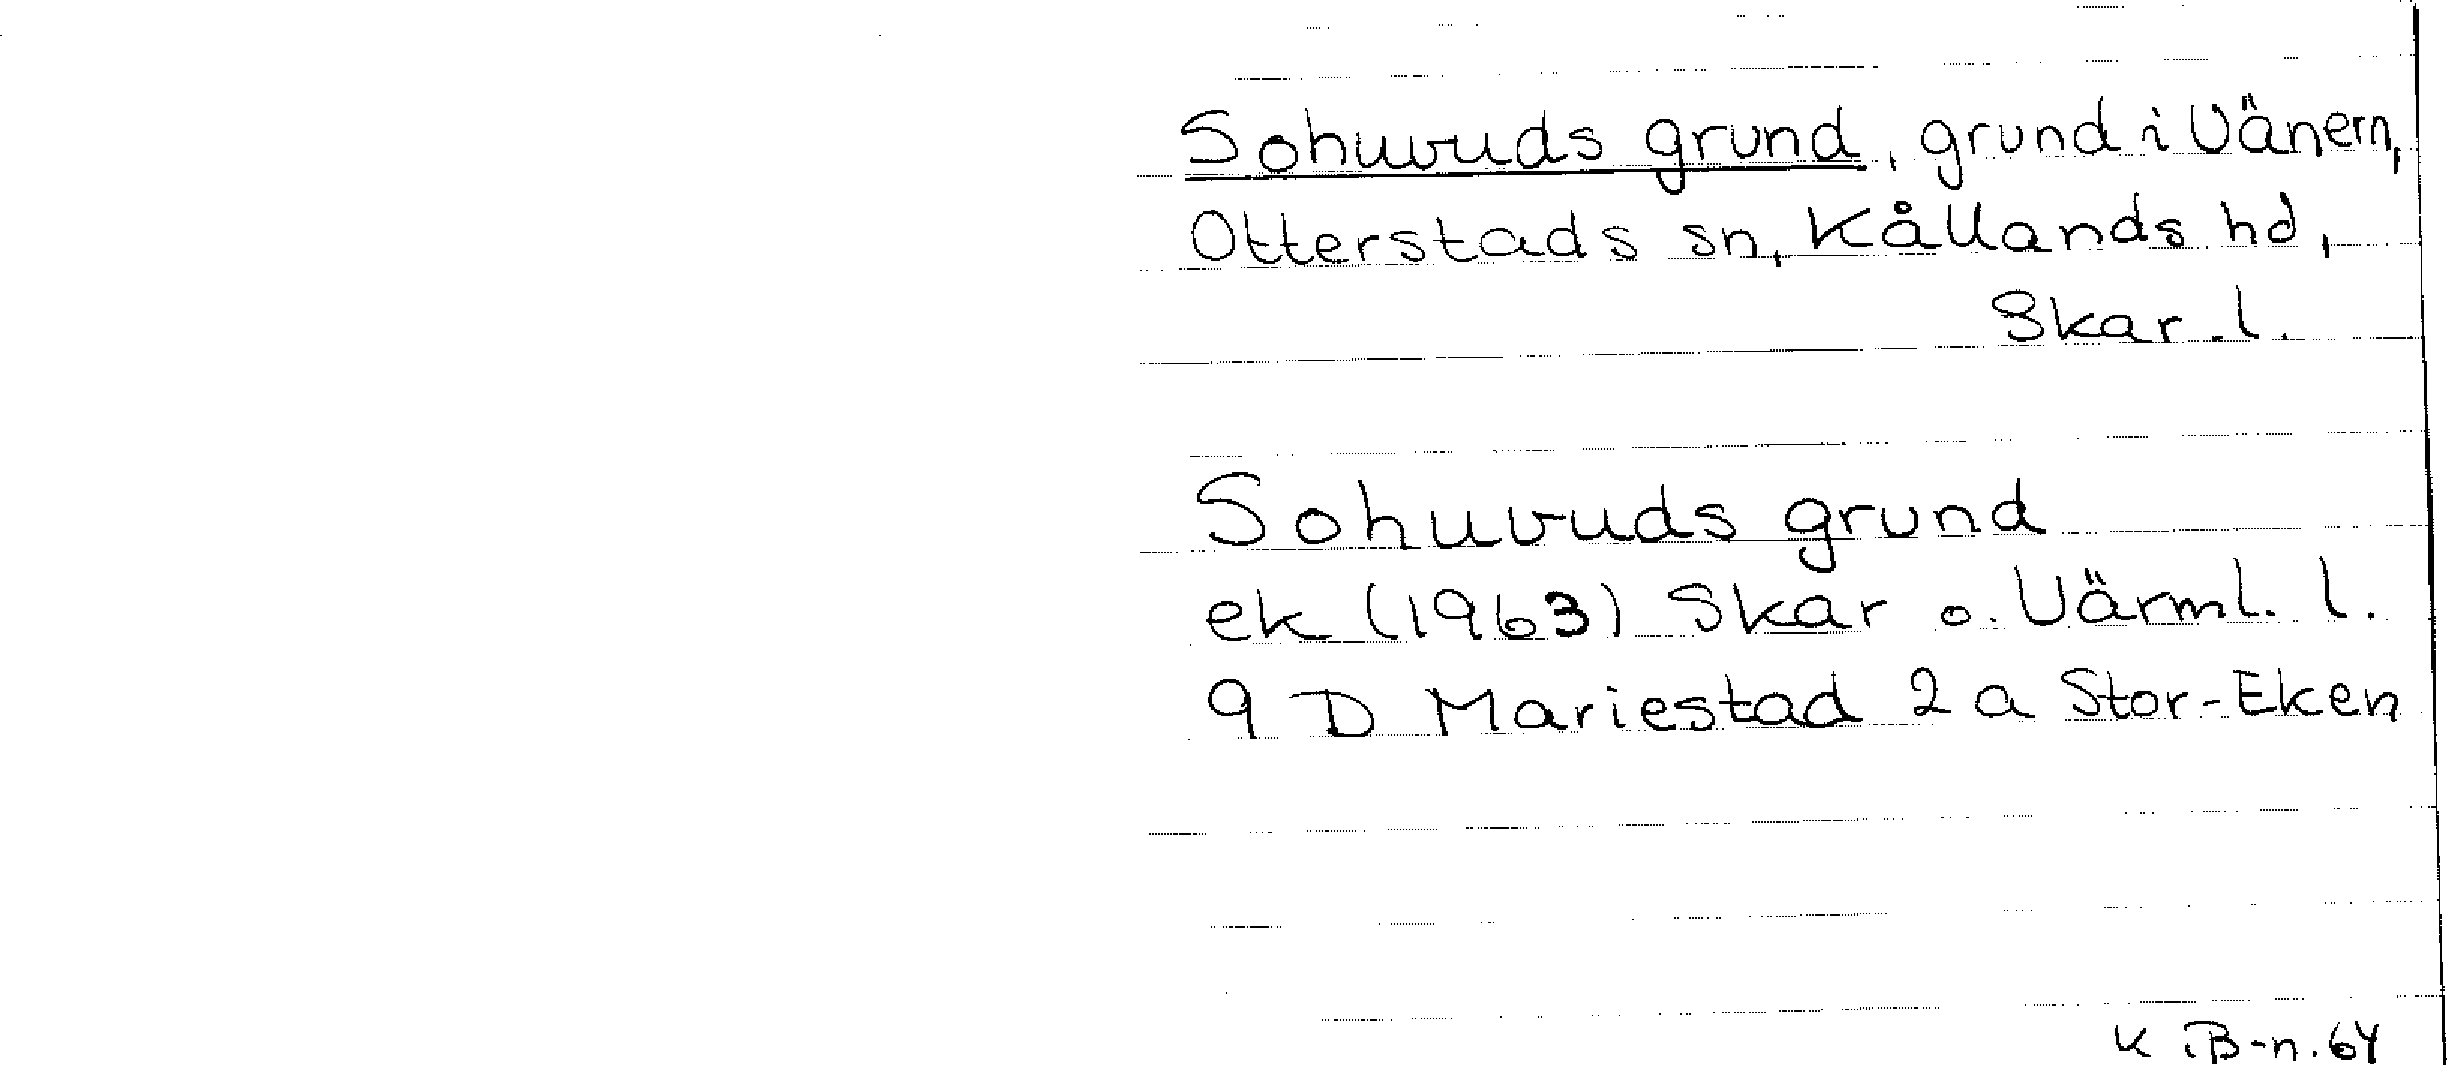 Sohuvuds grund, grund i Vänern,
Otterstads sn, Kållands hd,
Skar. l.
Sohuvuds grund
ek (1963) Skar o. Värml. l.
9 D Mariestad 2 a Stor-Eken
K. B-n. 64